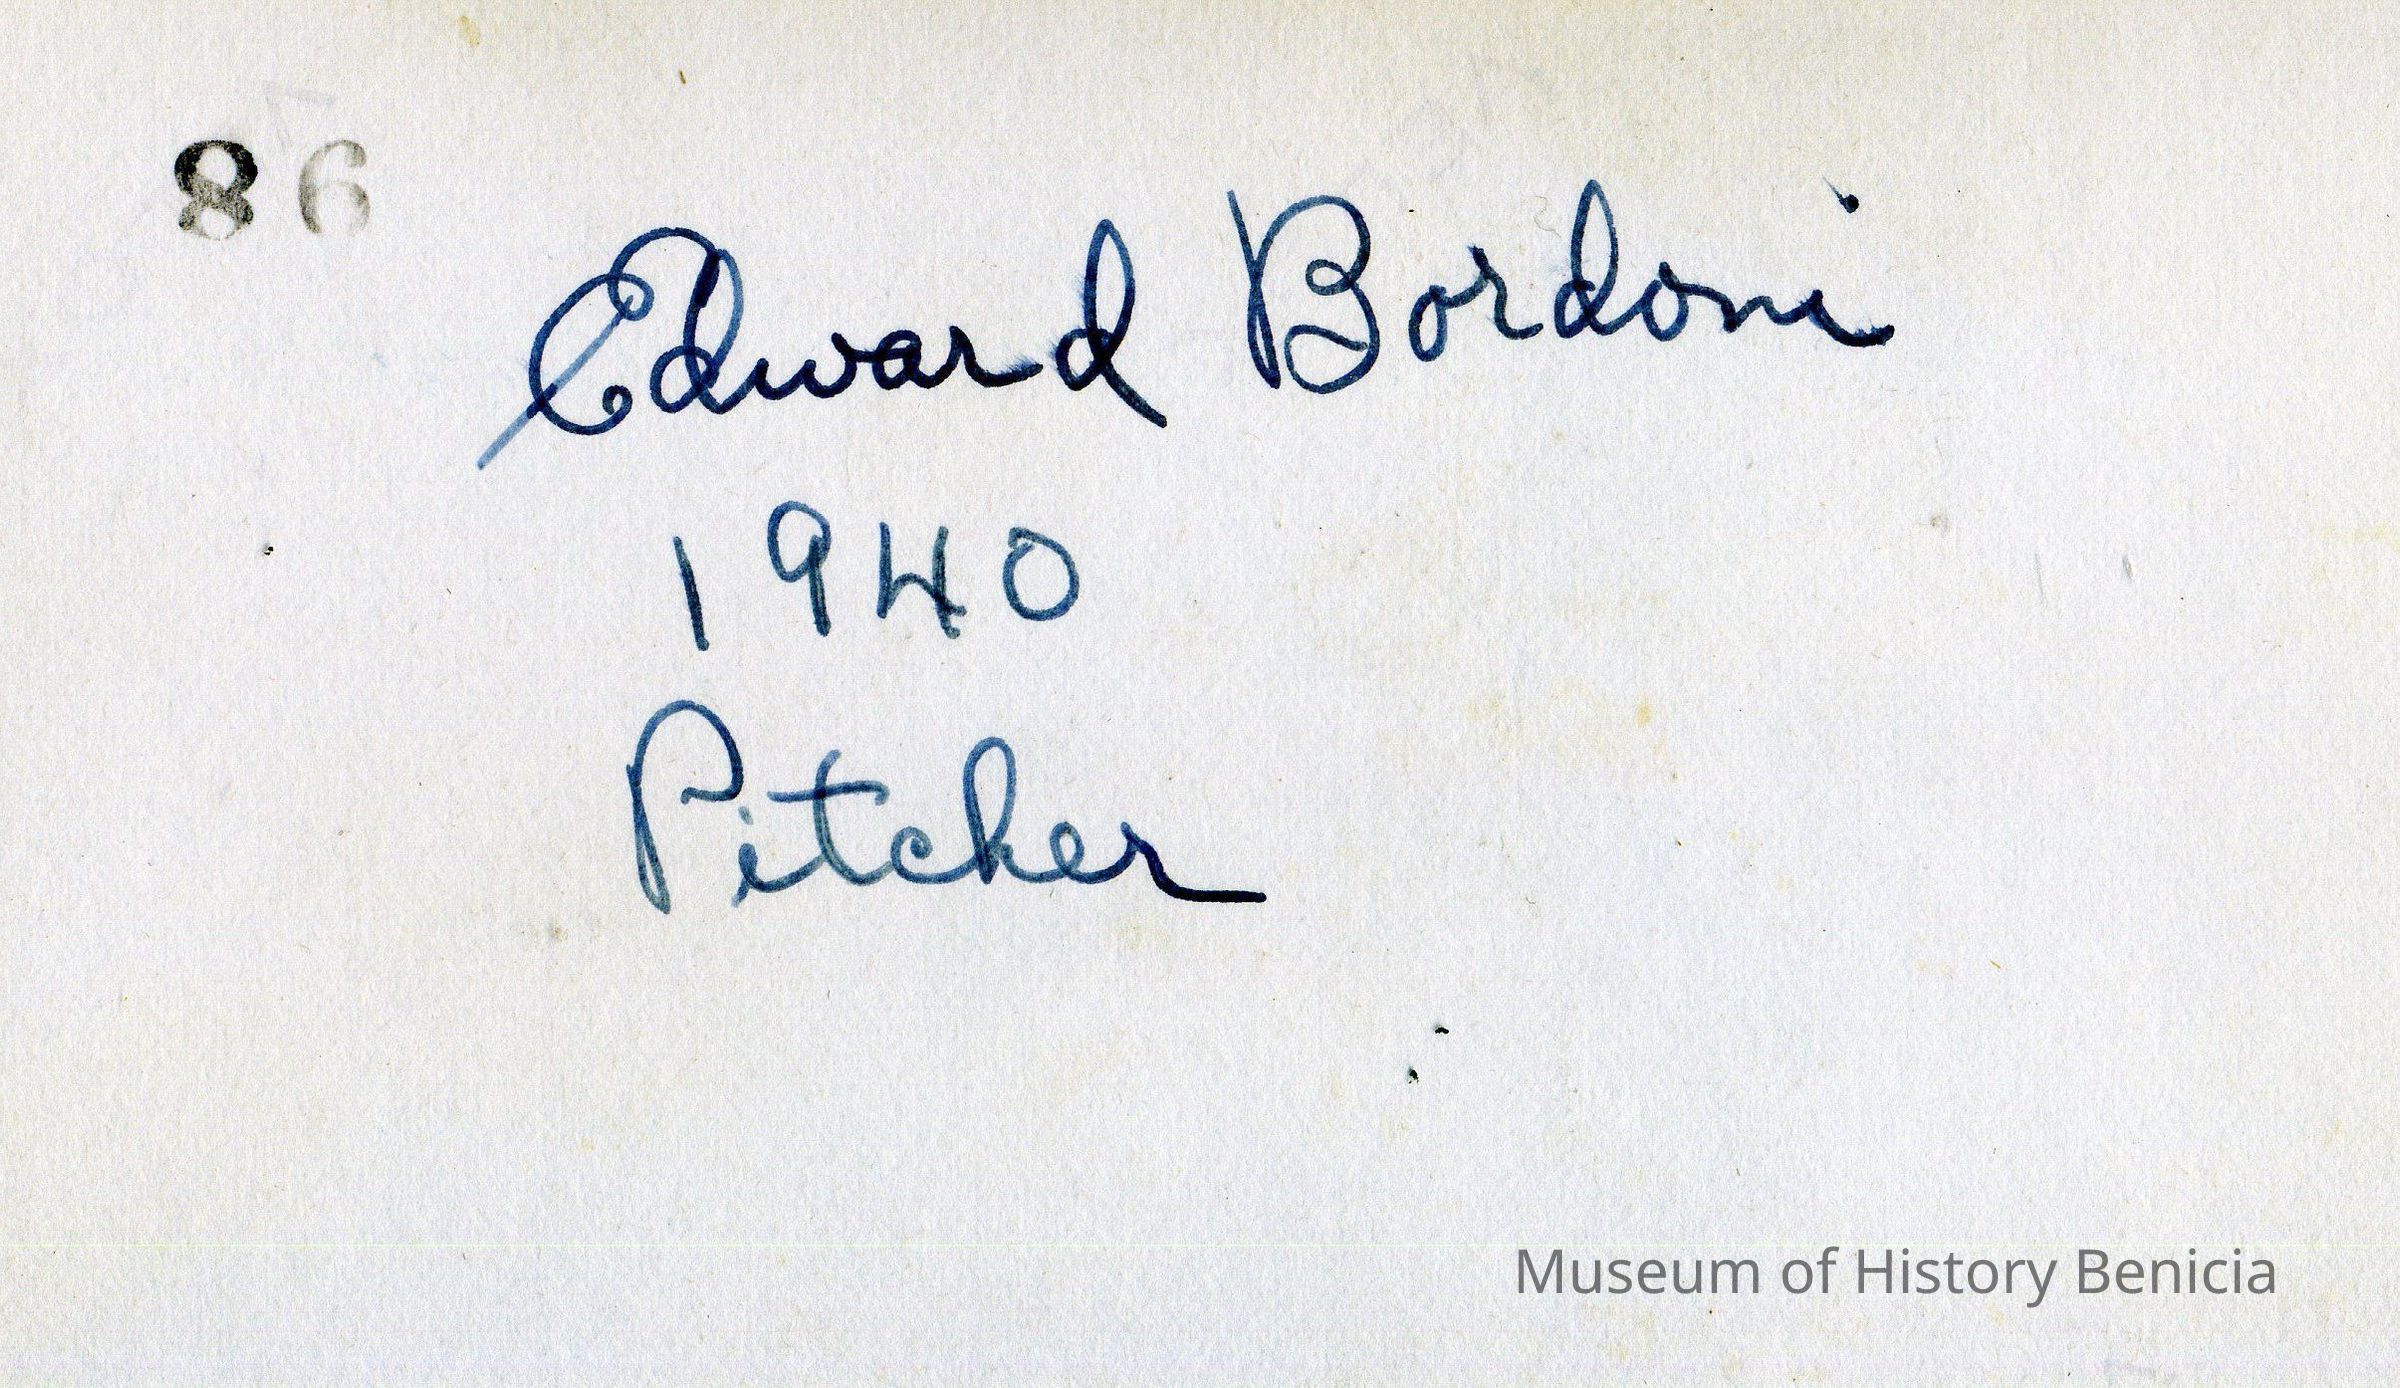 86
Edward Bordoni
1940
Pitcher
Museum of History Benicia